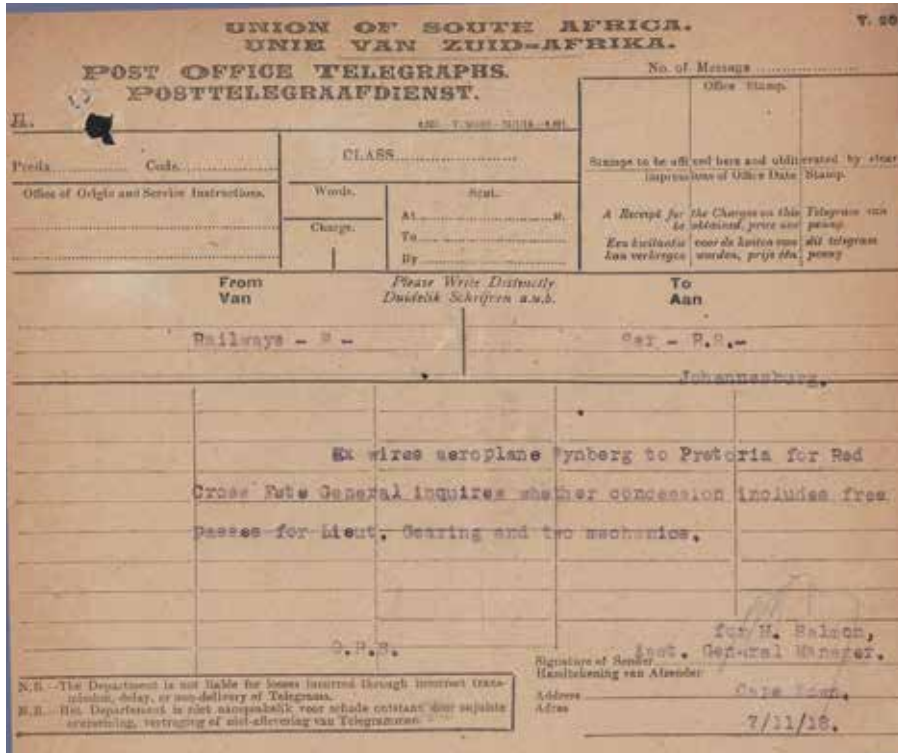 UNION OF SOUTH AFRICA.
UNIE VAN ZUID-AFRIKA.
POST OFFICE TELEGRAPHS.
POSTTELEGRAAFDIENST.
No. of Message
Office Stamp.
CLASS
Prefix Code
Stamps to be affixed here and obliterated by clear
impressions of Office Date Stamp.
Office of Origin and Service Instructions.
Words.
Sent.
Charge.
At
To
By
A Receipt for the Charges on this Telegram can
be obtained, price one penny.
Een kwitantie voor de kosten van dit telegram
kan verkregen worden, prijs één penny
From
Van
Please Write Distinctly
Duidelik Schrijven a.u.b.
To
Aan
Railways -
- R.S.-
Johannesburg.
Ex wires aeroplane Wynberg to Pretoria for Red
Cross Fete General inquires whether concession includes free
passes for Lieut. Gearing and two mechanics.
for
General Manager.
Signature of Sender
Handtekening van Afzender
Address
Adres
Cape Town.
7/11/18.
N.B.—The Department is not liable for losses incurred through incorrect trans-
mission, delay, or non-delivery of Telegrams.
N.B.—Het Departement is niet aansprakelik voor schade ontstaan door onjuiste
overseining, vertraging of niet-aflevering van Telegrammen.